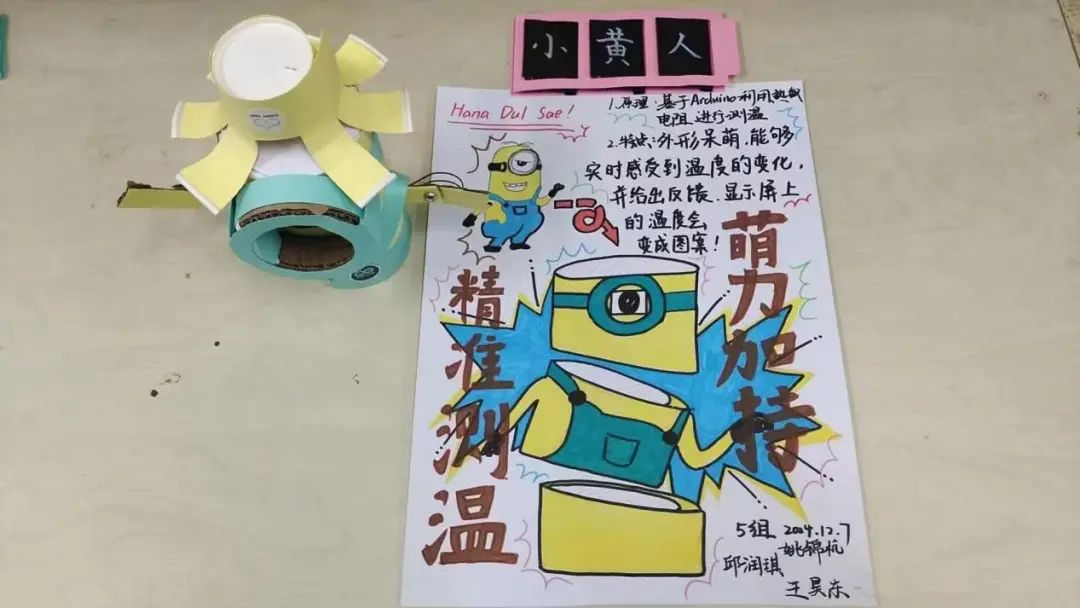 小黄人
Hana Dul Sae!
1.原理:基于Arduino利用热敏
电阻进行测温
2.特点:外形呆萌,能够
实时感受到温度的变化,
并给出反馈.显示屏上
的温度会
变成图案!
精准测温
萌力加持
5组 2024.12.7
姚锦杭
邱润琪
王昊东